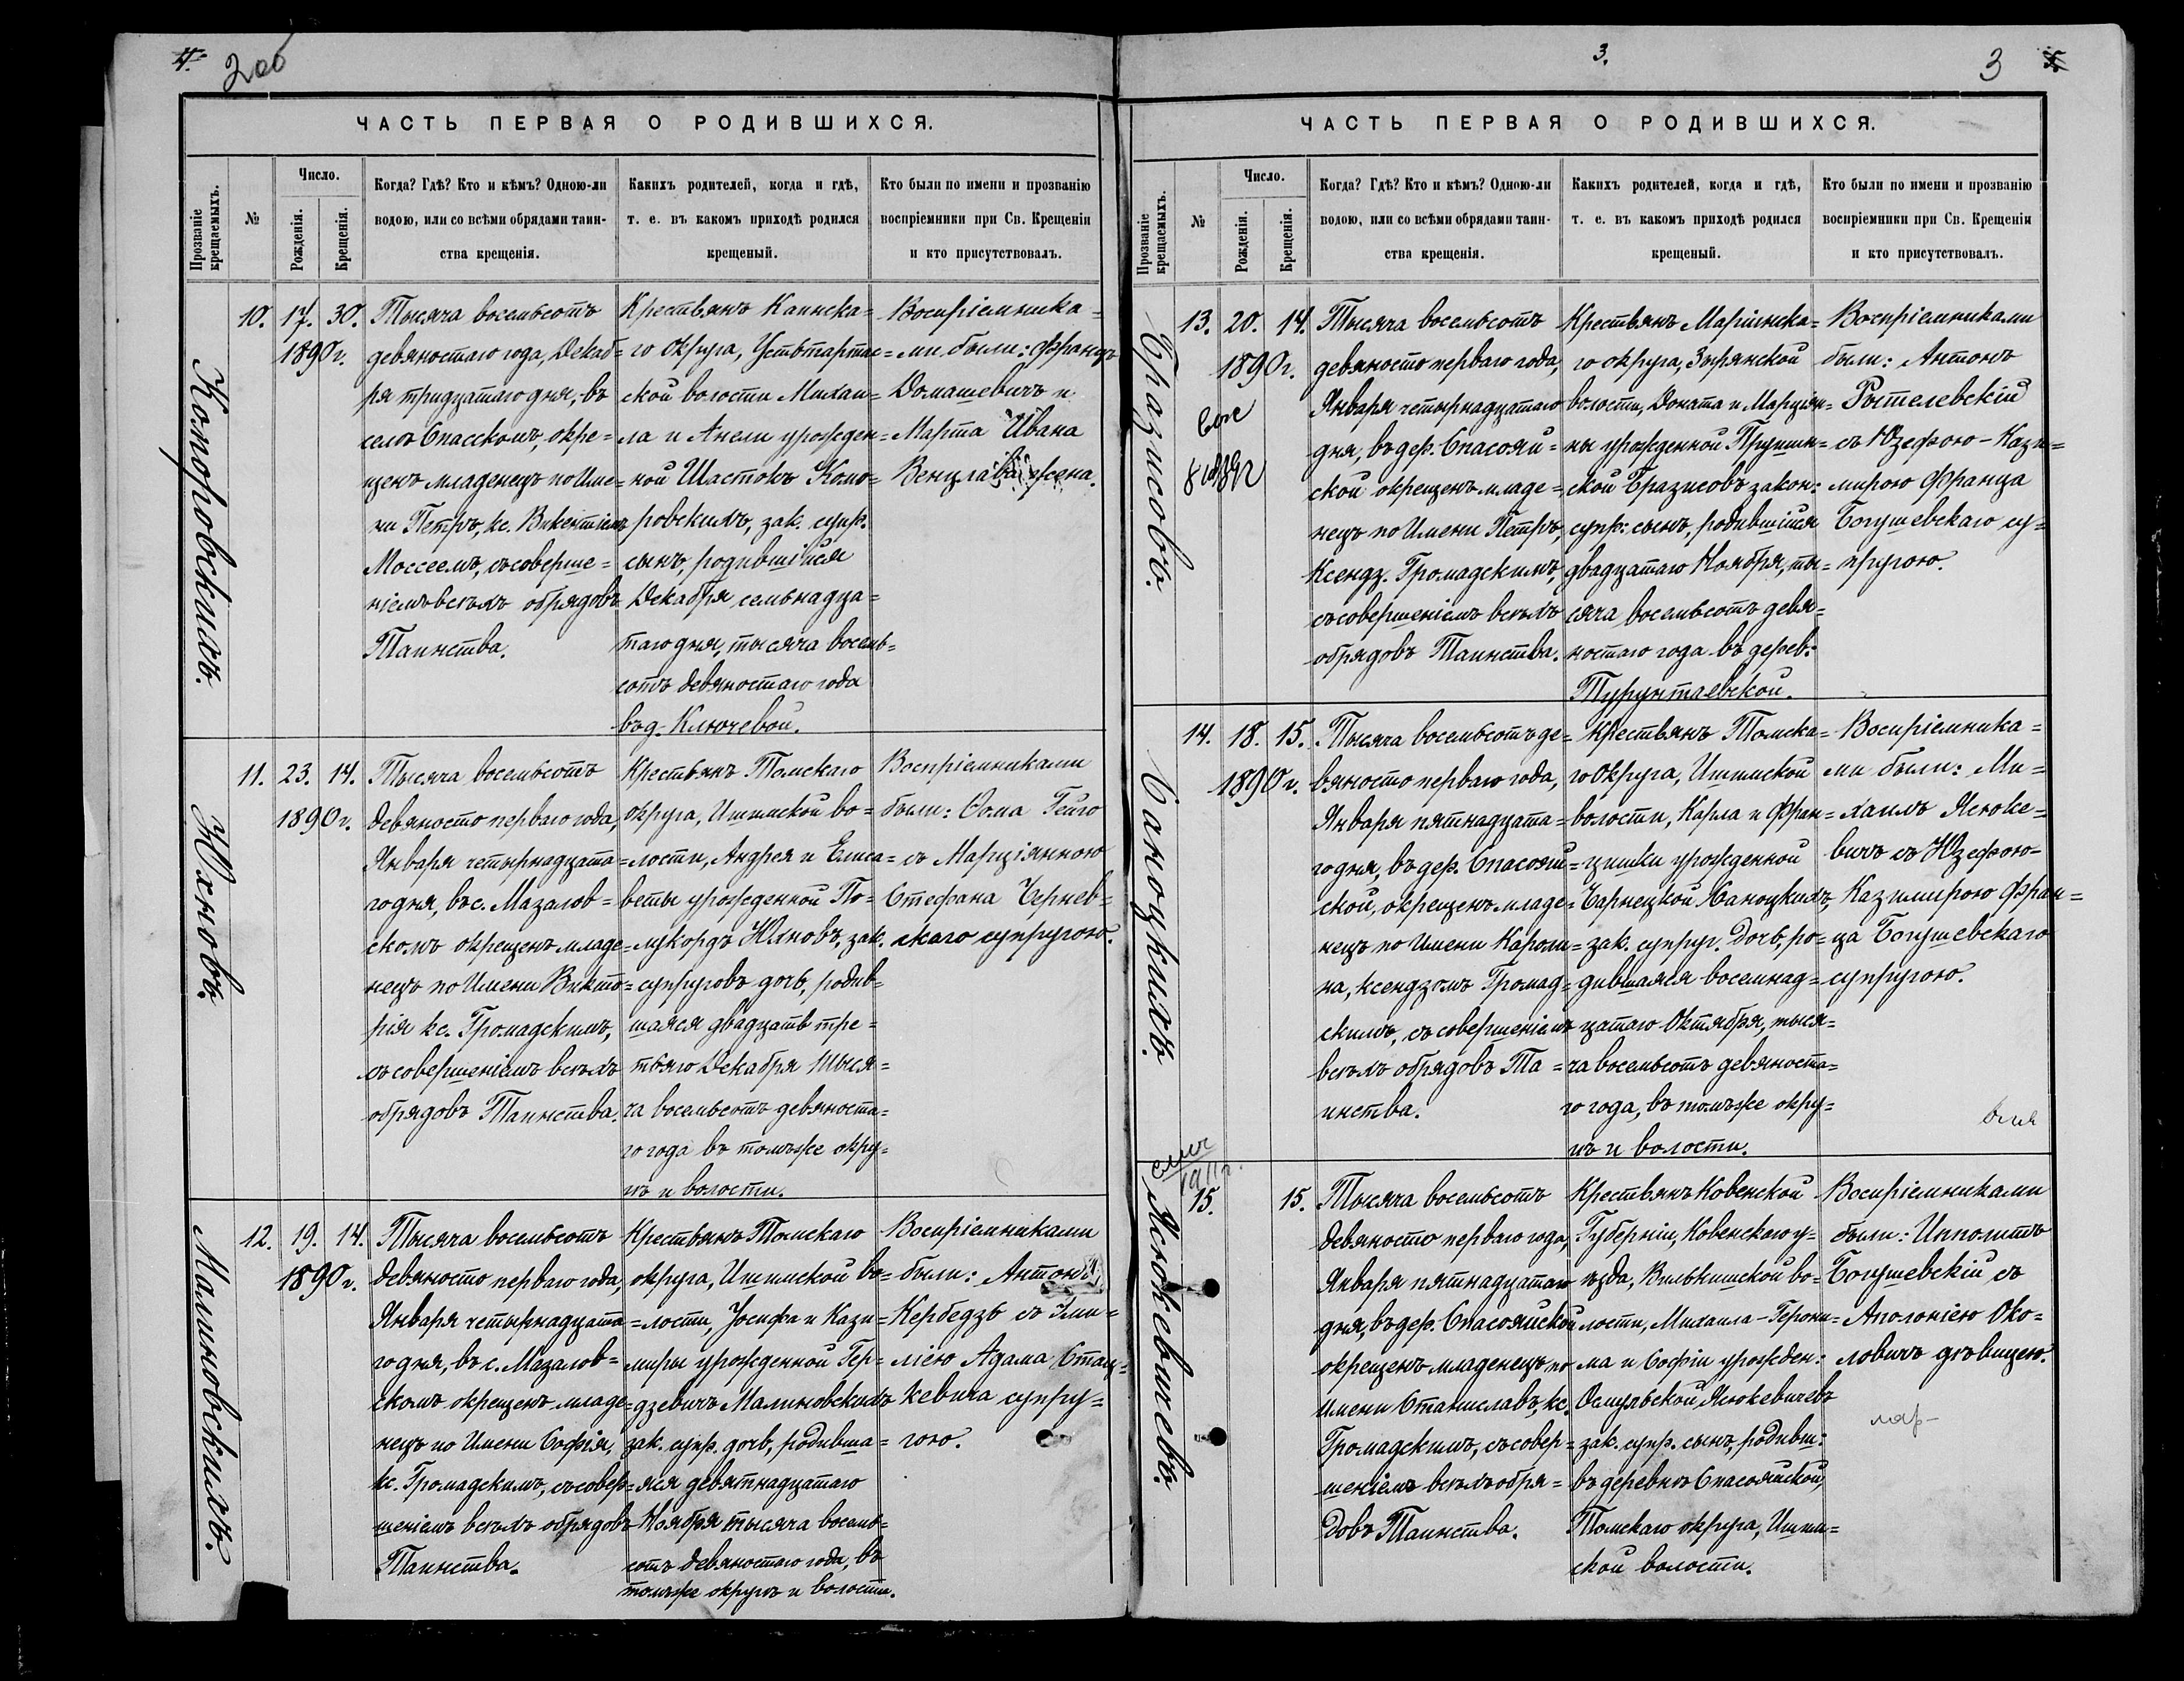 4.
2об
ЧАСТЬ ПЕРВАЯ О РОДИВШИХСЯ.
Прозваніе крещаемыхъ.
№
Число.
Рожденія.
Крещенія.
Когда? Гдѣ? Кто и кѣмъ? Одною-ли
водою, или со всѣми обрядами таин-
ства крещенія.
Какихъ родителей, когда и гдѣ,
т. е. въ какомъ приходѣ родился
крещеный.
Кто были по имени и прозванію
воспріемники при Св. Крещеніи
и кто присутствовалъ.
Коморовскихъ.
10. 17. 30.
1890 г.
Тысяча восемьсотъ
девяностаго года, Декаб=
ря тридцатаго дня, въ
селѣ Спасскомъ, окре=
щенъ младенецъ по Име=
ни Петръ, кс. Викентіемъ
Моссеемъ, съ соверше=
ніемъ всѣхъ обрядовъ
Таинства.
Крестьянъ Каинска=
го Округа, Устьтартас=
ской волости Михаи=
ла и Анели урожден=
ной Шастокъ Комо=
ровскихъ, зак. супр.
сынъ, родившійся
Декабря семьнадца=
таго дня, тысяча восемь=
сотъ девяностаго года
въ д. Ключевой.
Воспріемника=
ми были: Францъ
Домашевичъ и
Марта Ивана
Венцлава жена.
Юхновъ.
11. 23. 14.
1890 г.
Тысяча восемьсотъ
девяносто перваго года,
Января четырнадцата=
го дня, въ с. Мазалов=
скомъ окрещенъ младе=
нецъ по Имени Викто=
рія кс. Громадскимъ,
съ совершеніемъ всѣхъ
обрядовъ Таинства.
Крестьянъ Томскаго
округа, Ишимской во=
лости, Андрея и Елиса=
веты урожденной По=
лукордъ Юхновъ, зак.
супруговъ дочь, родив=
шаяся двадцать тре=
тьяго Декабря тыся=
ча восемьсотъ девяноста=
го года въ томъ же окру=
гѣ и волости.
Воспріемниками
были: Ѳома Гейго
съ Марціянною
Стефана Чернев=
скаго супругою.
Малиновскихъ.
12. 19. 14.
1890 г.
Тысяча восемьсотъ
девяносто перваго года,
Января четырнадцата=
го дня, въ с. Мазалов=
скомъ окрещенъ младе=
нецъ по Имени Софія,
кс. Громадскимъ, съ совер=
шеніемъ всѣхъ обрядовъ
Таинства.
Крестьянъ Томскаго
округа, Ишимской во=
лости, Іосифа и Кази=
миры урожденной Гер=
дзевичъ Малиновскихъ
зак. супр. дочь, родивша=
яся девятнадцатаго
Ноября тысяча восемь=
сотъ девяностаго года, въ
томъ же округѣ и волости.
Воспріемниками
были: Антонъ
Кербедзь съ Эми=
ліею Адама Стан=
кевича супру=
гою.
3.
3
5.
ЧАСТЬ ПЕРВАЯ О РОДИВШИХСЯ.
Прозваніе крещаемыхъ.
№
Число.
Рожденія.
Крещенія.
Когда? Гдѣ? Кто и кѣмъ? Одною-ли
водою, или со всѣми обрядами таин-
ства крещенія.
Какихъ родителей, когда и гдѣ,
т. е. въ какомъ приходѣ родился
крещеный.
Кто были по имени и прозванію
воспріемники при Св. Крещеніи
и кто присутствовалъ.
Бразисовъ.
13. 20. 14.
1890 г.
Тысяча восемьсотъ
девяносто перваго года,
Января четырнадцатаго
дня, въ дер. Спасояй=
ской окрещенъ младе=
нецъ по Имени Петръ,
Ксендз. Громадскимъ,
съ совершеніемъ всѣхъ
обрядовъ Таинства.
Крестьянъ Маріинска=
го округа, Зырянской
волости, Доната и Марціян=
ны урожденной Трушин=
ской Бразисовъ закон:
супр: сынъ, родившійся
двадцатаго Ноября, ты=
сяча восемьсотъ девя=
ностаго года въ дерев:
Турунтаевской.
Воспріемниками
были: Антонъ
Ростелевскій
съ Юзефою-Кази=
мирою Франца
Богушевскаго су=
пругою.
Ханоцкихъ.
14. 18. 15.
1890 г.
Тысяча восемьсотъ де=
вяносто перваго года,
Января пятнадцата=
го дня, въ дер. Спасояй=
ской, окрещенъ младе=
нецъ по Имени Кароли=
на, ксендзомъ Громад=
скимъ, съ совершеніемъ
всѣхъ обрядовъ Та=
инства.
Крестьянъ Томска=
го Округа, Ишимской
волости, Карла и Фран=
цишки урожденной
Чарнецкой Ханоцкихъ,
зак. супруг. дочь, ро=
дившаяся восемнад=
цатаго Октября, тыся=
ча восемьсотъ девяноста=
го года, въ томъ же окру=
гѣ и волости.
Воспріемника=
ми были: Ми=
хаилъ Яснюке=
вичъ съ Юзефою=
Казимирою Фран=
ца Богушевскаго
супругою.
1911 г.
Яснюкевичевъ.
15. 15.
Тысяча восемьсотъ
девяносто перваго года,
Января пятнадцатаго
дня, въ дер. Спасояйской
окрещенъ младенецъ по
Имени Станиславъ, кс.
Громадскимъ, съ совер=
шеніемъ всѣхъ обря=
довъ Таинства.
Крестьянъ Ковенской
Губерніи, Ковенскаго у=
ѣзда, Вилькишской во=
лости, Михаила-Герони=
ма и Софіи урожден:
Осмульской, Яснюкевичевъ
зак. супр. сынъ, родивш:
въ деревнѣ Спасояйской,
Томскаго округа, Ишим=
ской волости.
Воспріемниками
были: Ипполитъ
Богушевскій съ
Аполоніею Око=
ловичъ дѣвицею.